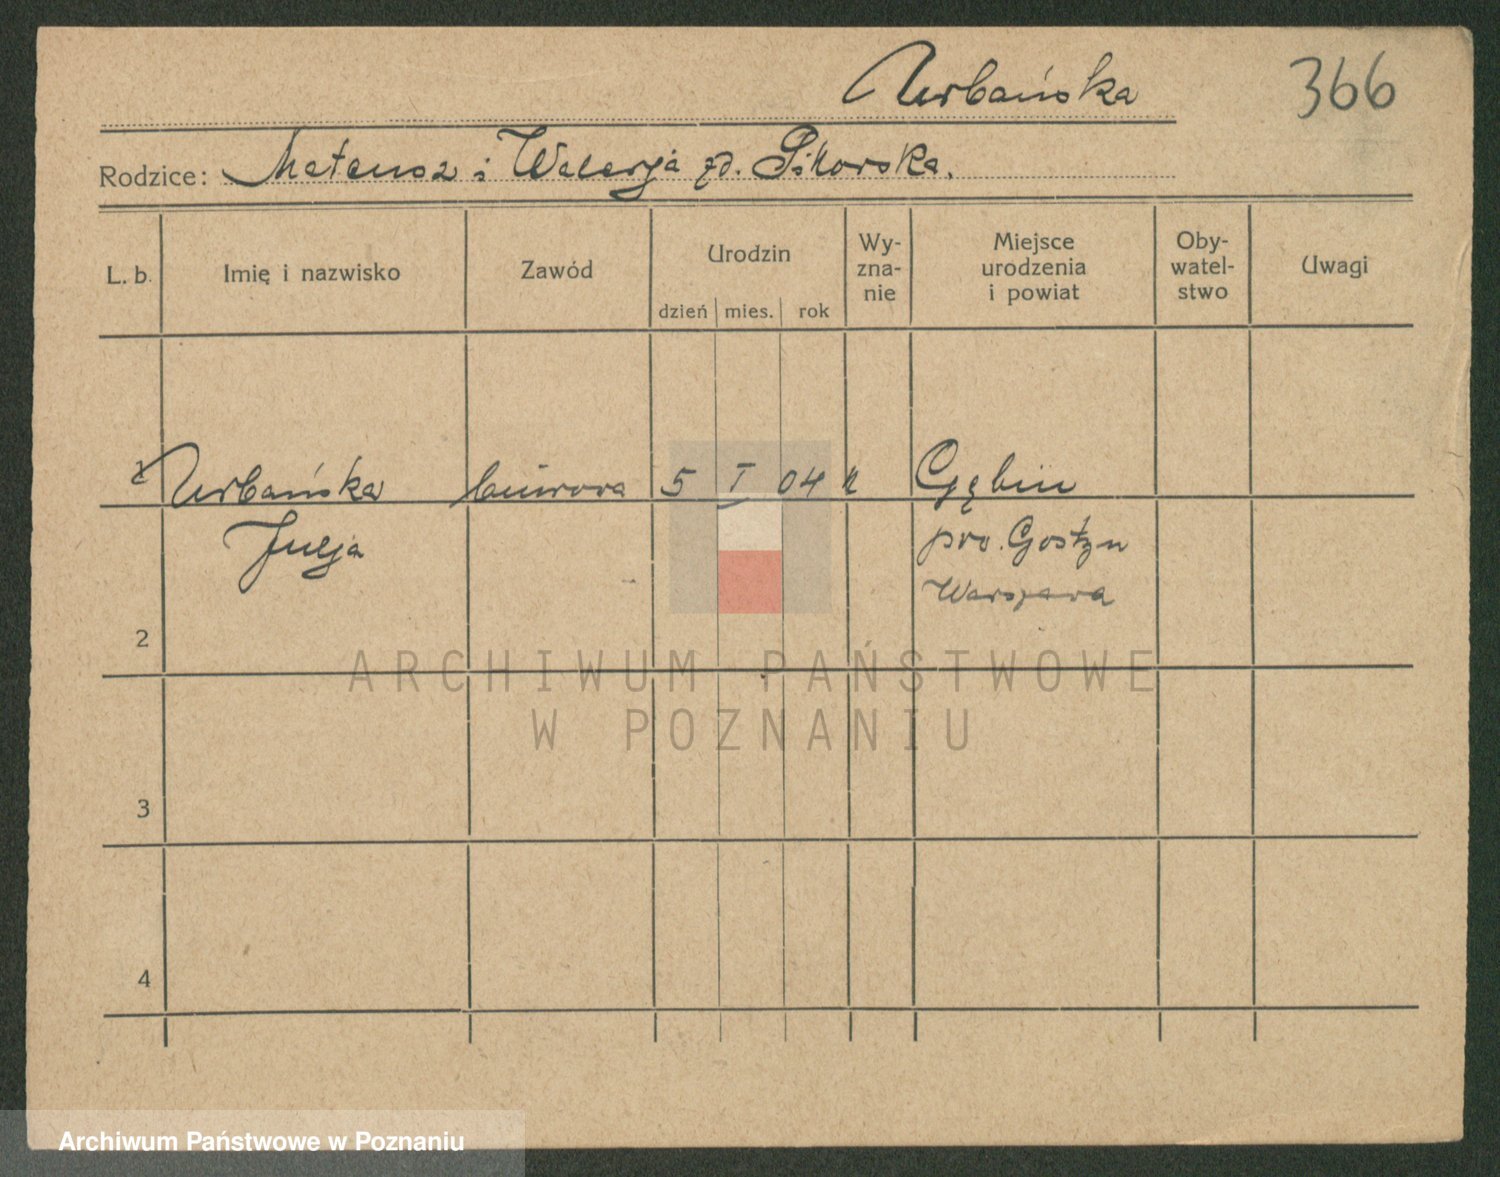 Urbańska
366
Rodzice: Mateusz i Walerja zd. Sikorska.
L. b.
Imię i nazwisko
Zawód
Urodzin
dzień mies. rok
Wy-
zna-
nie
Miejsce
urodzenia
i powiat
Oby-
watel-
stwo
Uwagi
1 Urbańska biurowa 5 I 04 k Gąbin
Julja pow. Gostyn
Warszawa
2
3
4
ARCHIWUM PAŃSTWOWE
W POZNANIU
Archiwum Państwowe w Poznaniu